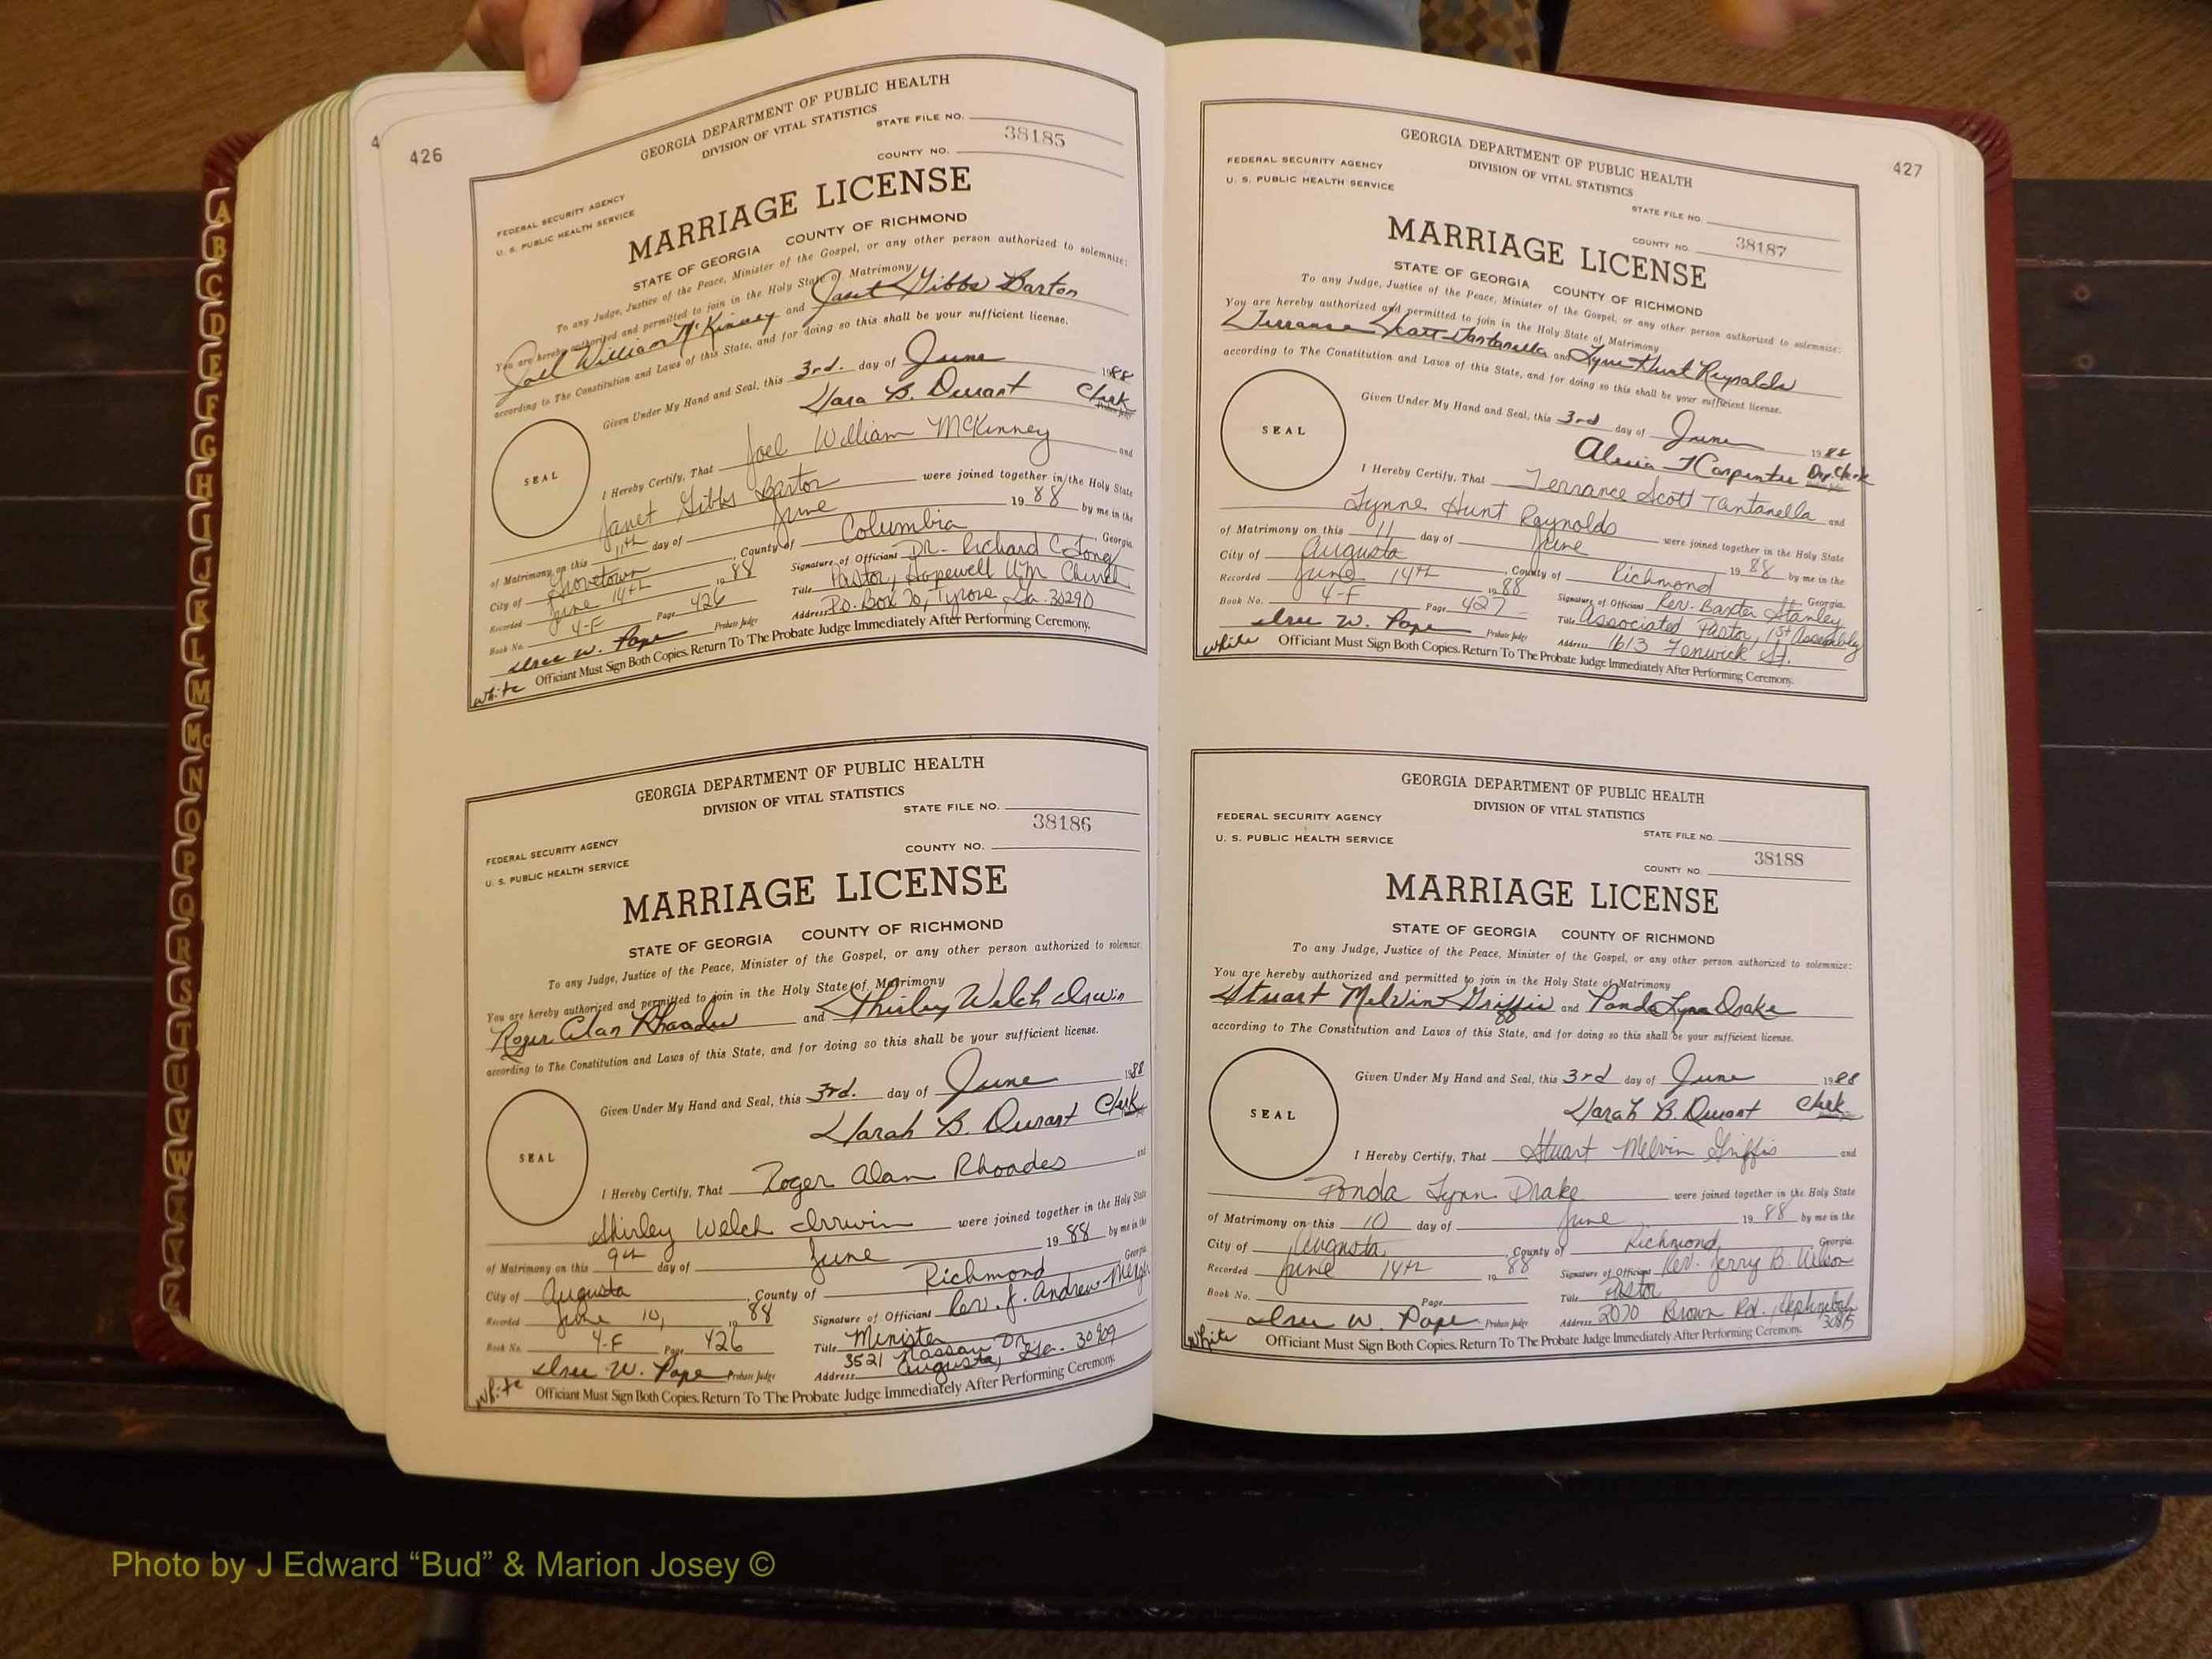 426
GEORGIA DEPARTMENT OF PUBLIC HEALTH
DIVISION OF VITAL STATISTICS
STATE FILE NO.
38185
COUNTY NO.
FEDERAL SECURITY AGENCY
U. S. PUBLIC HEALTH SERVICE
MARRIAGE LICENSE
STATE OF GEORGIA COUNTY OF RICHMOND
To any Judge, Justice of the Peace, Minister of the Gospel, or any other person authorized to solemnize:
You are hereby authorized and permitted to join in the Holy State of Matrimony
Joel William McKinney and Janet Gibbs Barton
according to The Constitution and Laws of this State, and for doing so this shall be your sufficient license.
Given Under My Hand and Seal, this 3rd. day of June 1988
Sara B. Durant Clerk
SEAL
I Hereby Certify, That Joel William McKinney and
Janet Gibbs Barton were joined together in the Holy State
of Matrimony on this 11th day of June 1988 by me in the
City of Grovetown, County of Columbia, Georgia.
Recorded June 14th 1988 Signature of Officiant Dr. Richard C. Long
Book No. 4-F Page 426 Title Pastor, Hopewell UM Church
Address P.O. Box 70, Tyrone, Ga. 30290
W. Pope Probate Judge
Officiant Must Sign Both Copies. Return To The Probate Judge Immediately After Performing Ceremony.
white
GEORGIA DEPARTMENT OF PUBLIC HEALTH
DIVISION OF VITAL STATISTICS
STATE FILE NO.
38186
COUNTY NO.
FEDERAL SECURITY AGENCY
U. S. PUBLIC HEALTH SERVICE
MARRIAGE LICENSE
STATE OF GEORGIA COUNTY OF RICHMOND
To any Judge, Justice of the Peace, Minister of the Gospel, or any other person authorized to solemnize:
You are hereby authorized and permitted to join in the Holy State of Matrimony
Roger Alan Rhoades and Shirley Welch Irwin
according to The Constitution and Laws of this State, and for doing so this shall be your sufficient license.
Given Under My Hand and Seal, this 3rd. day of June 1988
Sarah B. Durant Clerk
SEAL
I Hereby Certify, That Roger Alan Rhoades and
Shirley Welch Irwin were joined together in the Holy State
of Matrimony on this 9th day of June 1988 by me in the
City of Augusta, County of Richmond Georgia
Recorded June 10, 1988 Signature of Officiant Rev. J. Andrew
Book No. 4-F Page 426 Title Minister
3521 Nassau Dr.
Address Augusta, Ga. 30909
W. Pope Probate Judge
white Officiant Must Sign Both Copies. Return To The Probate Judge Immediately After Performing Ceremony.
427
GEORGIA DEPARTMENT OF PUBLIC HEALTH
DIVISION OF VITAL STATISTICS
FEDERAL SECURITY AGENCY
U. S. PUBLIC HEALTH SERVICE
STATE FILE NO.
38187
COUNTY NO.
MARRIAGE LICENSE
STATE OF GEORGIA COUNTY OF RICHMOND
To any Judge, Justice of the Peace, Minister of the Gospel, or any other person authorized to solemnize:
You are hereby authorized and permitted to join in the Holy State of Matrimony
Terrance Scott Tantanella and Lynne Hunt Reynolds
according to The Constitution and Laws of this State, and for doing so this shall be your sufficient license.
Given Under My Hand and Seal, this 3rd day of June 1988
Carpenter Dep. Clerk
SEAL
I Hereby Certify, That Terrance Scott Tantanella and
Lynne Hunt Reynolds were joined together in the Holy State
of Matrimony on this 11 day of June 1988 by me in the
City of Augusta, County of Richmond Georgia.
Recorded June 14th 1988 Signature of Officiant Rev. Baxter Stanley
Book No. 4-F Page 427 Title Associated Pastor, 1st Assembly
Address 1613 Fenwick St.
W. Pope Probate Judge
white Officiant Must Sign Both Copies. Return To The Probate Judge Immediately After Performing Ceremony.
GEORGIA DEPARTMENT OF PUBLIC HEALTH
DIVISION OF VITAL STATISTICS
FEDERAL SECURITY AGENCY
U. S. PUBLIC HEALTH SERVICE
STATE FILE NO.
38188
COUNTY NO.
MARRIAGE LICENSE
STATE OF GEORGIA COUNTY OF RICHMOND
To any Judge, Justice of the Peace, Minister of the Gospel, or any other person authorized to solemnize:
You are hereby authorized and permitted to join in the Holy State of Matrimony
Stuart Melvin Griffis and Ponda Lynn Drake
according to The Constitution and Laws of this State, and for doing so this shall be your sufficient license.
Given Under My Hand and Seal, this 3rd day of June 1988
Sarah B. Durant Clerk
SEAL
I Hereby Certify, That Stuart Melvin Griffis and
Ponda Lynn Drake were joined together in the Holy State
of Matrimony on this 10 day of June 1988 by me in the
City of Augusta, County of Richmond, Georgia.
Recorded June 14th 1988 Signature of Officiant Rev. Jerry B. Wilson
Book No. Page Title Pastor
Address 2070 Brown Rd., Hephzibah
30815
W. Pope Probate Judge
white Officiant Must Sign Both Copies. Return To The Probate Judge Immediately After Performing Ceremony.
Photo by J Edward “Bud” & Marion Josey ©